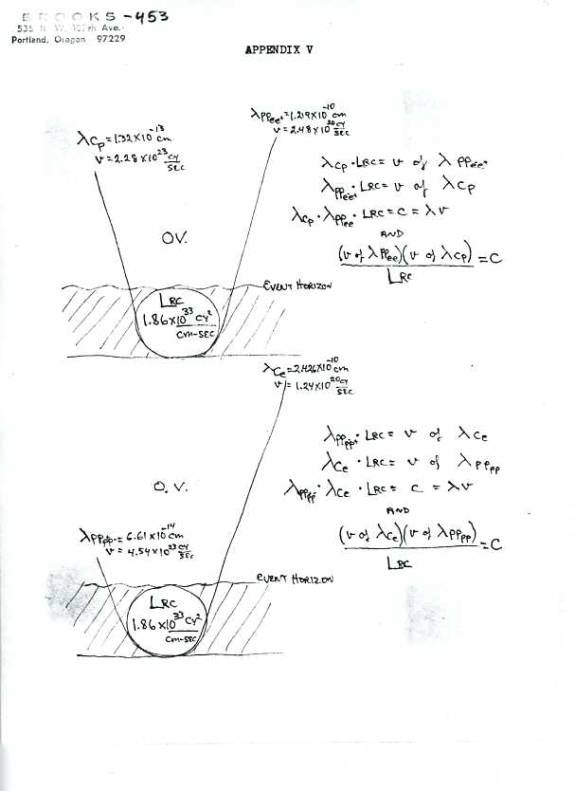 BROOKS-453
Portland, Oregon 97229
APPENDIX V
λCp=1.32×10⁻¹³ cm
ν=2.28×10²³ cy/sec
λPPee+=1.219×10⁻¹⁰ cm
ν=2.48×10²⁰ cy/sec
λCp·LRC=ν of λPPee+
λPPee+·LRC=ν of λCp
λCp·λPPee·LRC=C=λν
AND
(ν of λPPee)(ν of λCp)/LRC=C
O.V.
EVENT HORIZON
LRC
1.86×10³³ Cy²/cm-sec
λCe=2.426×10⁻¹⁰ cm
ν=1.24×10²⁰ cy/sec
λPPpp·LRC=ν of λCe
λCe·LRC=ν of λPPpp
λPPpp·λCe·LRC=C=λν
AND
(ν of λCe)(ν of λPPpp)/LRC=C
O.V.
λPPpp=6.61×10⁻¹⁴ cm
ν=4.54×10²³ cy/sec
EVENT HORIZON
LRC
1.86×10³³ Cy²/cm-sec